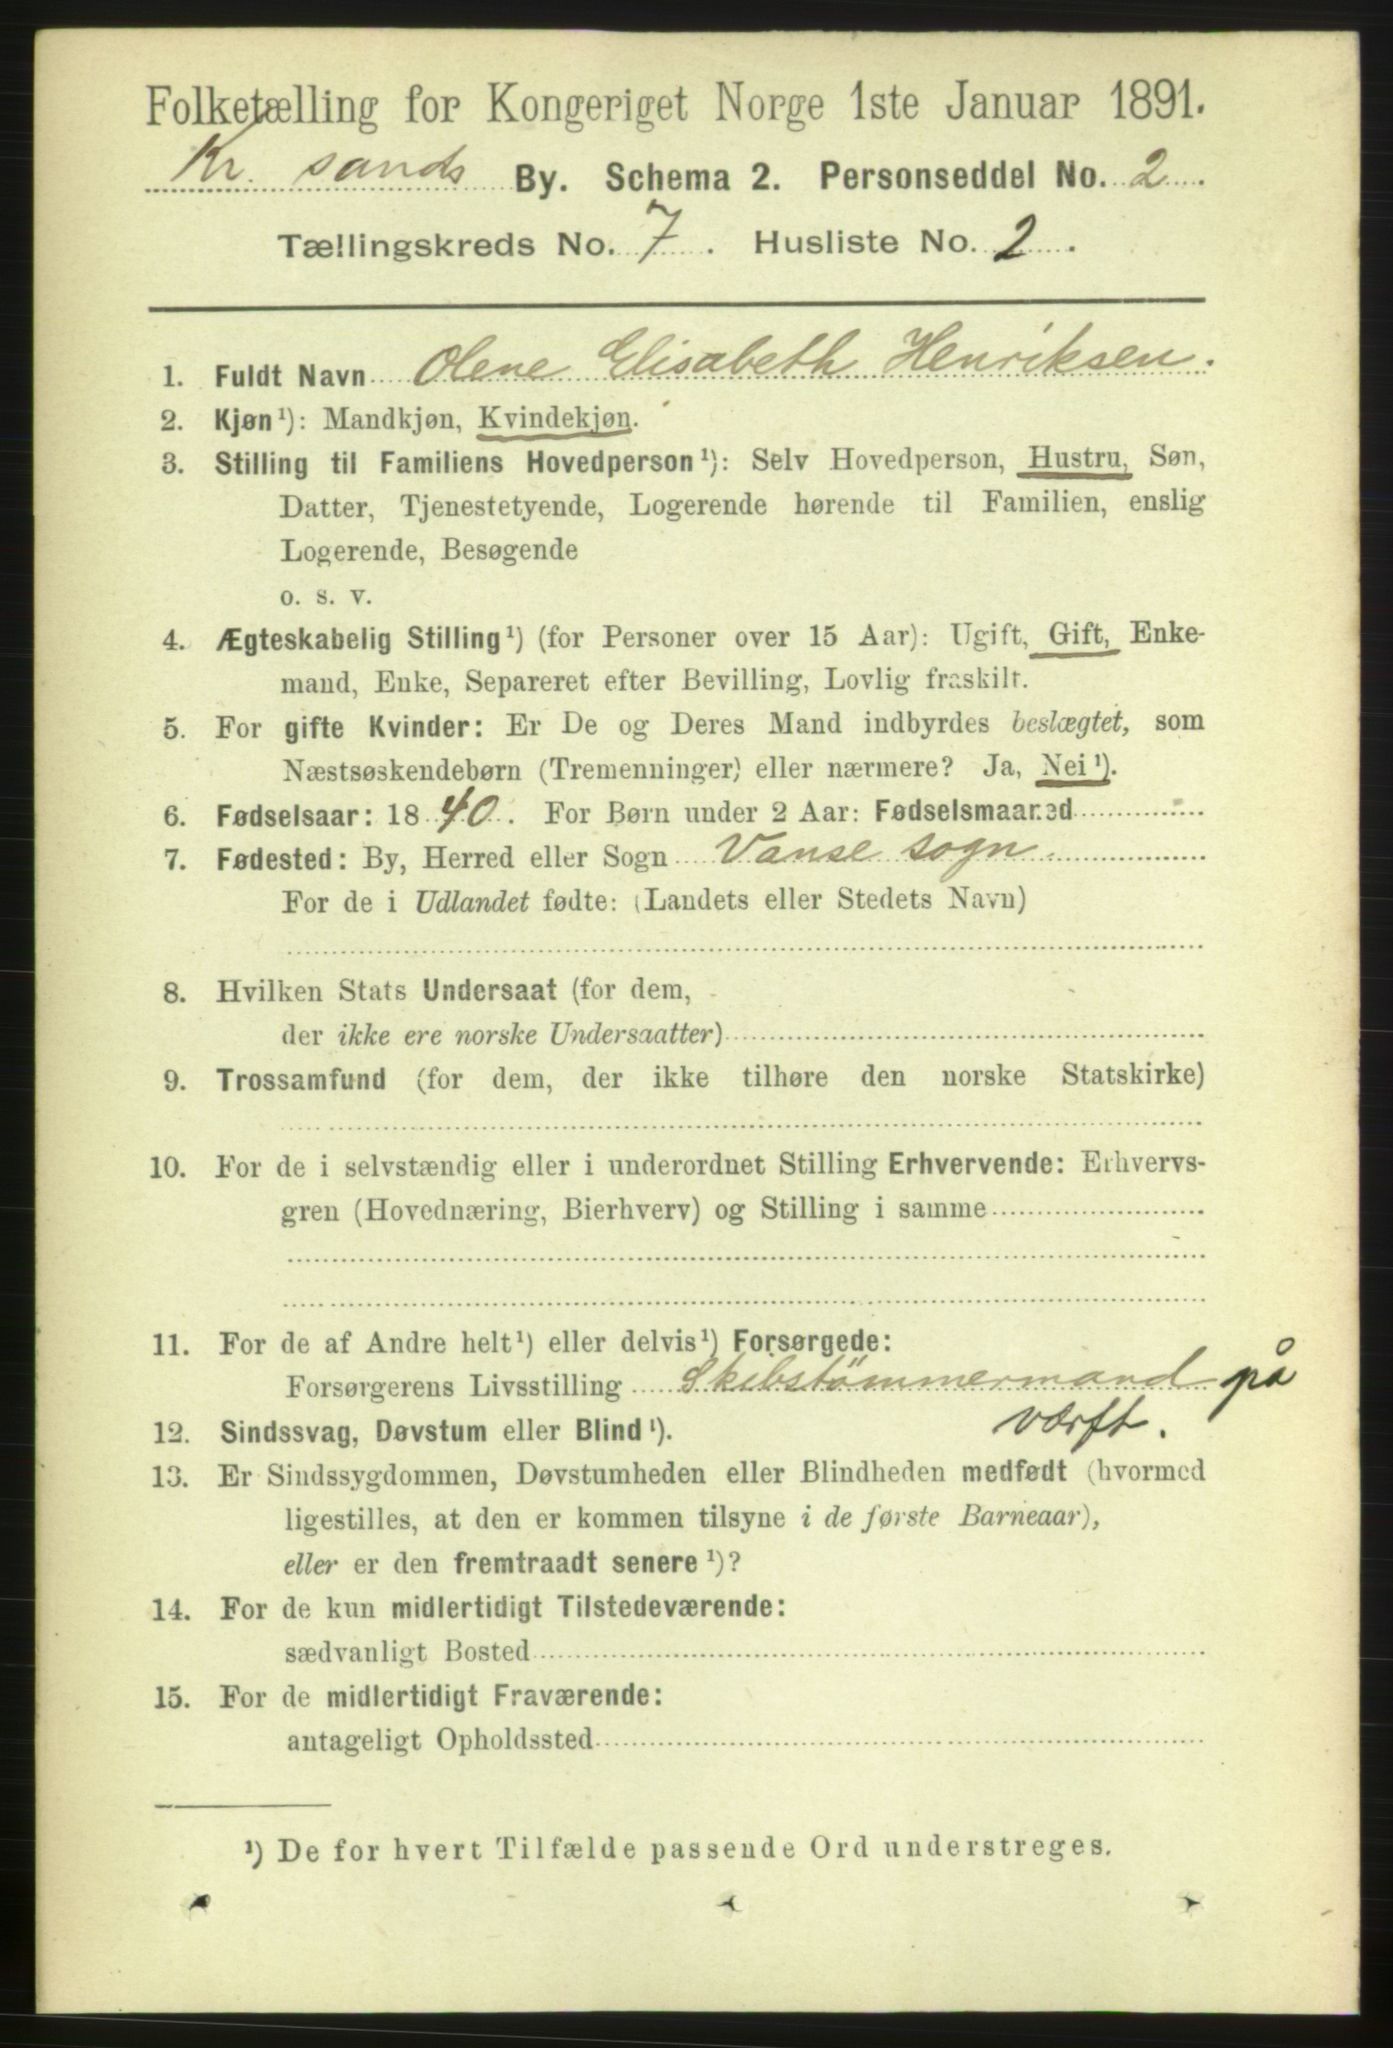 Folketælling for Kongeriget Norge 1ste Januar 1891.
Kr. sands By. Schema 2. Personseddel No. 2
Tællingskreds No. 7. Husliste No. 2.
1. Fuldt Navn Olene Elisabeth Henriksen.
2. Kjøn¹): Mandkjøn, Kvindekjøn.
3. Stilling til Familiens Hovedperson¹): Selv Hovedperson, Hustru, Søn,
Datter, Tjenestetyende, Logerende hørende til Familien, enslig
Logerende, Besøgende
o. s. v.
4. Ægteskabelig Stilling¹) (for Personer over 15 Aar): Ugift, Gift, Enke-
mand, Enke, Separeret efter Bevilling, Lovlig fraskilt.
5. For gifte Kvinder: Er De og Deres Mand indbyrdes beslægtet, som
Næstsøskendebørn (Tremenninger) eller nærmere? Ja, Nei¹).
6. Fødselsaar: 1840. For Børn under 2 Aar: Fødselsmaaned
7. Fødested: By, Herred eller Sogn Vanse sogn.
For de i Udlandet fødte: (Landets eller Stedets Navn)
8. Hvilken Stats Undersaat (for dem,
der ikke ere norske Undersaatter)
9. Trossamfund (for dem, der ikke tilhøre den norske Statskirke)
10. For de i selvstændig eller i underordnet Stilling Erhvervende: Erhvervs-
gren (Hovednæring, Bierhverv) og Stilling i samme
11. For de af Andre helt¹) eller delvis¹) Forsørgede:
Forsørgerens Livsstilling Skibstömmermand på
værft.
12. Sindssvag, Døvstum eller Blind¹).
13. Er Sindssygdommen, Døvstumheden eller Blindheden medfødt (hvormed
ligestilles, at den er kommen tilsyne i de første Barneaar),
eller er den fremtraadt senere¹)?
14. For de kun midlertidigt Tilstedeværende:
sædvanligt Bosted
15. For de midlertidigt Fraværende:
antageligt Opholdssted
¹) De for hvert Tilfælde passende Ord understreges.